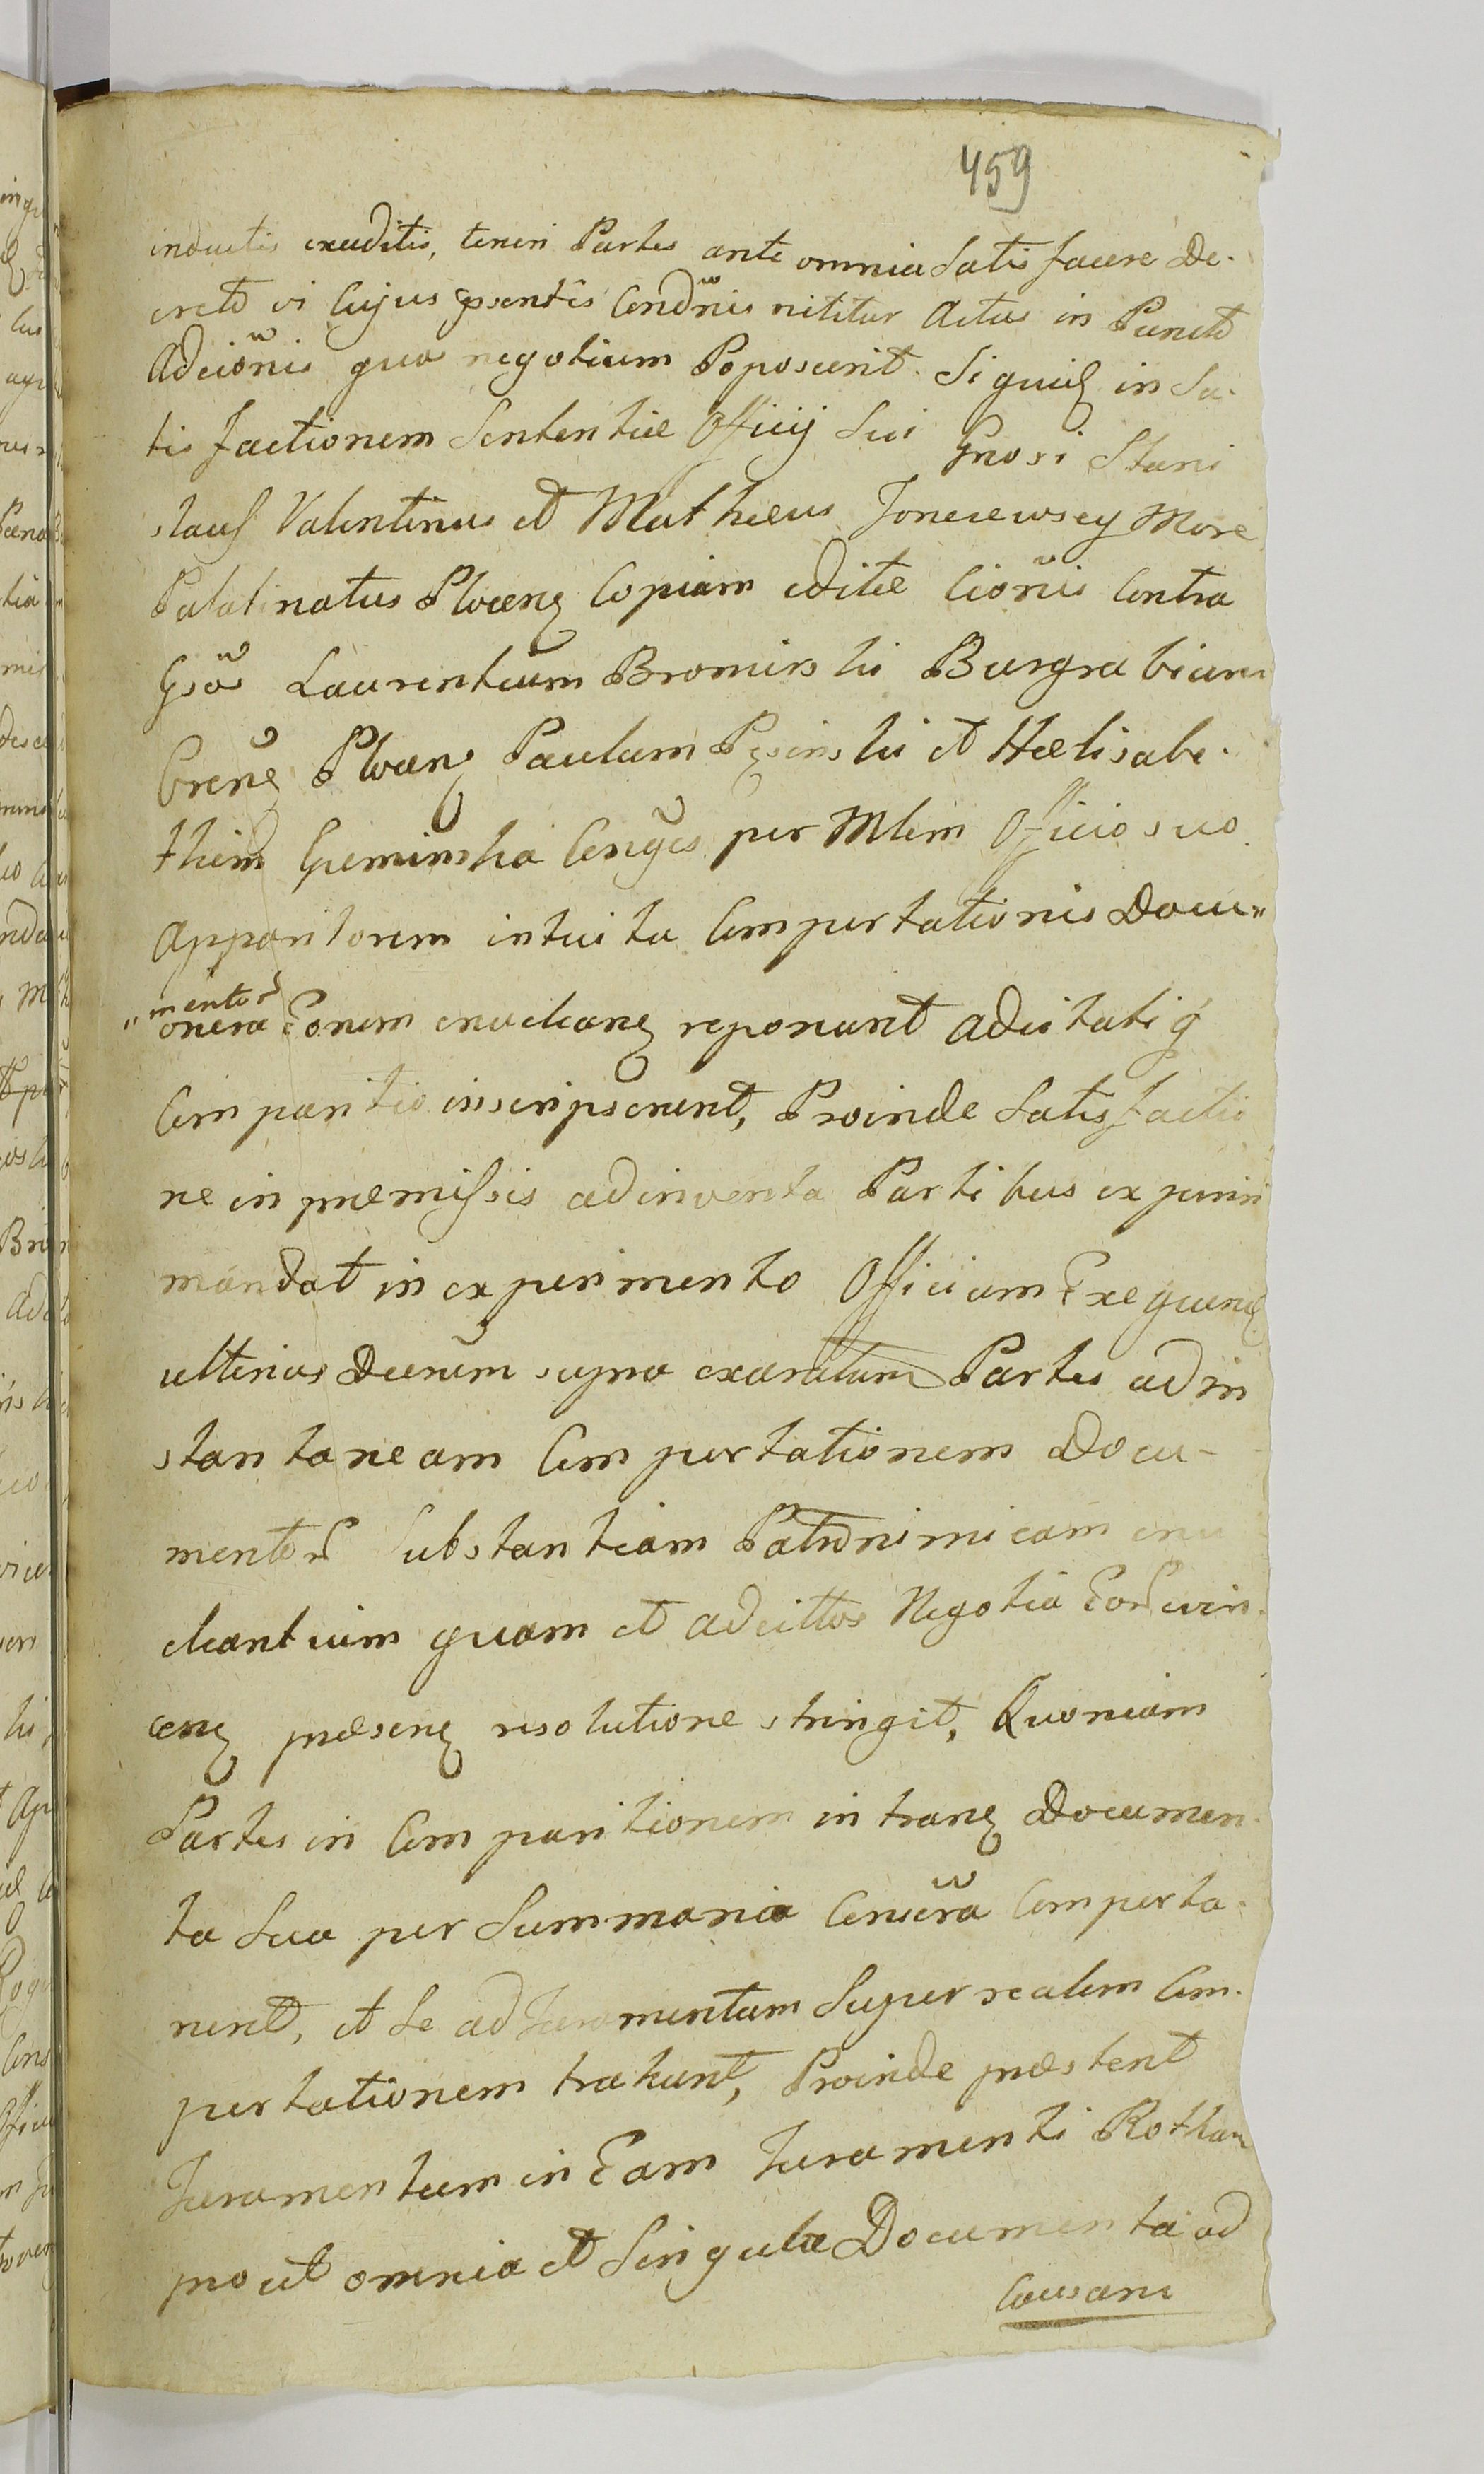 459
inductis exauditis, teneri Partes ante omnia Satis facere De-
creto vi Cujus psentis Condnis nititur Actus in Puncto
Adcionis qua negotium Poposcerit. Siquid in Sa-
tis factionem Sententiæ Officij Sui Gnosi Stani
slaus Valentinus et Mathæus Jonciewscy More
Palatinatus Plocen Copiam editæ Cionis Contra
Gsos Laurentium Bromirski Burgrabium
Cren Plocen Paulum Psinski et Hælisabe-
thim Gseminska Conges per Mlem Officio suo
Apparitorem intuitu Comportationis Docu-
mentor
onera Eorum enucleang reponunt adcitatiq
Comparitio inscripserunt, Proinde Satisfactio
ne in præmissis adinventa Partibus experiri
mandat in experimento Officium Exequend
ulterius Decretum supra exaratum Partes ad in
stantaneam Comportationem Docu-
mentor Substantiam Patronimicam enu
cleantium quam et adcittos Negotia Eor evin-
ceng præseng resolutione stringit, Quoniam
Partes in Comparitionem intrang Documen-
ta Sua per Summaria Conscra Comporta-
runt, et Se ad Juramentum Super realem Com-
portationem trahunt, Proinde præstent
Juramentum in Eam Juramenti Rotham
prout omnia et Singula Documenta ad
Causam